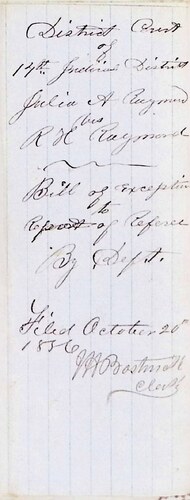 District Court
of
14th Judicial District
Julia A Raymond
vs
R H Raymond
Bill of Exception
to
Report of Referee
By Deft.
Filed October 20th
1856
Clerk